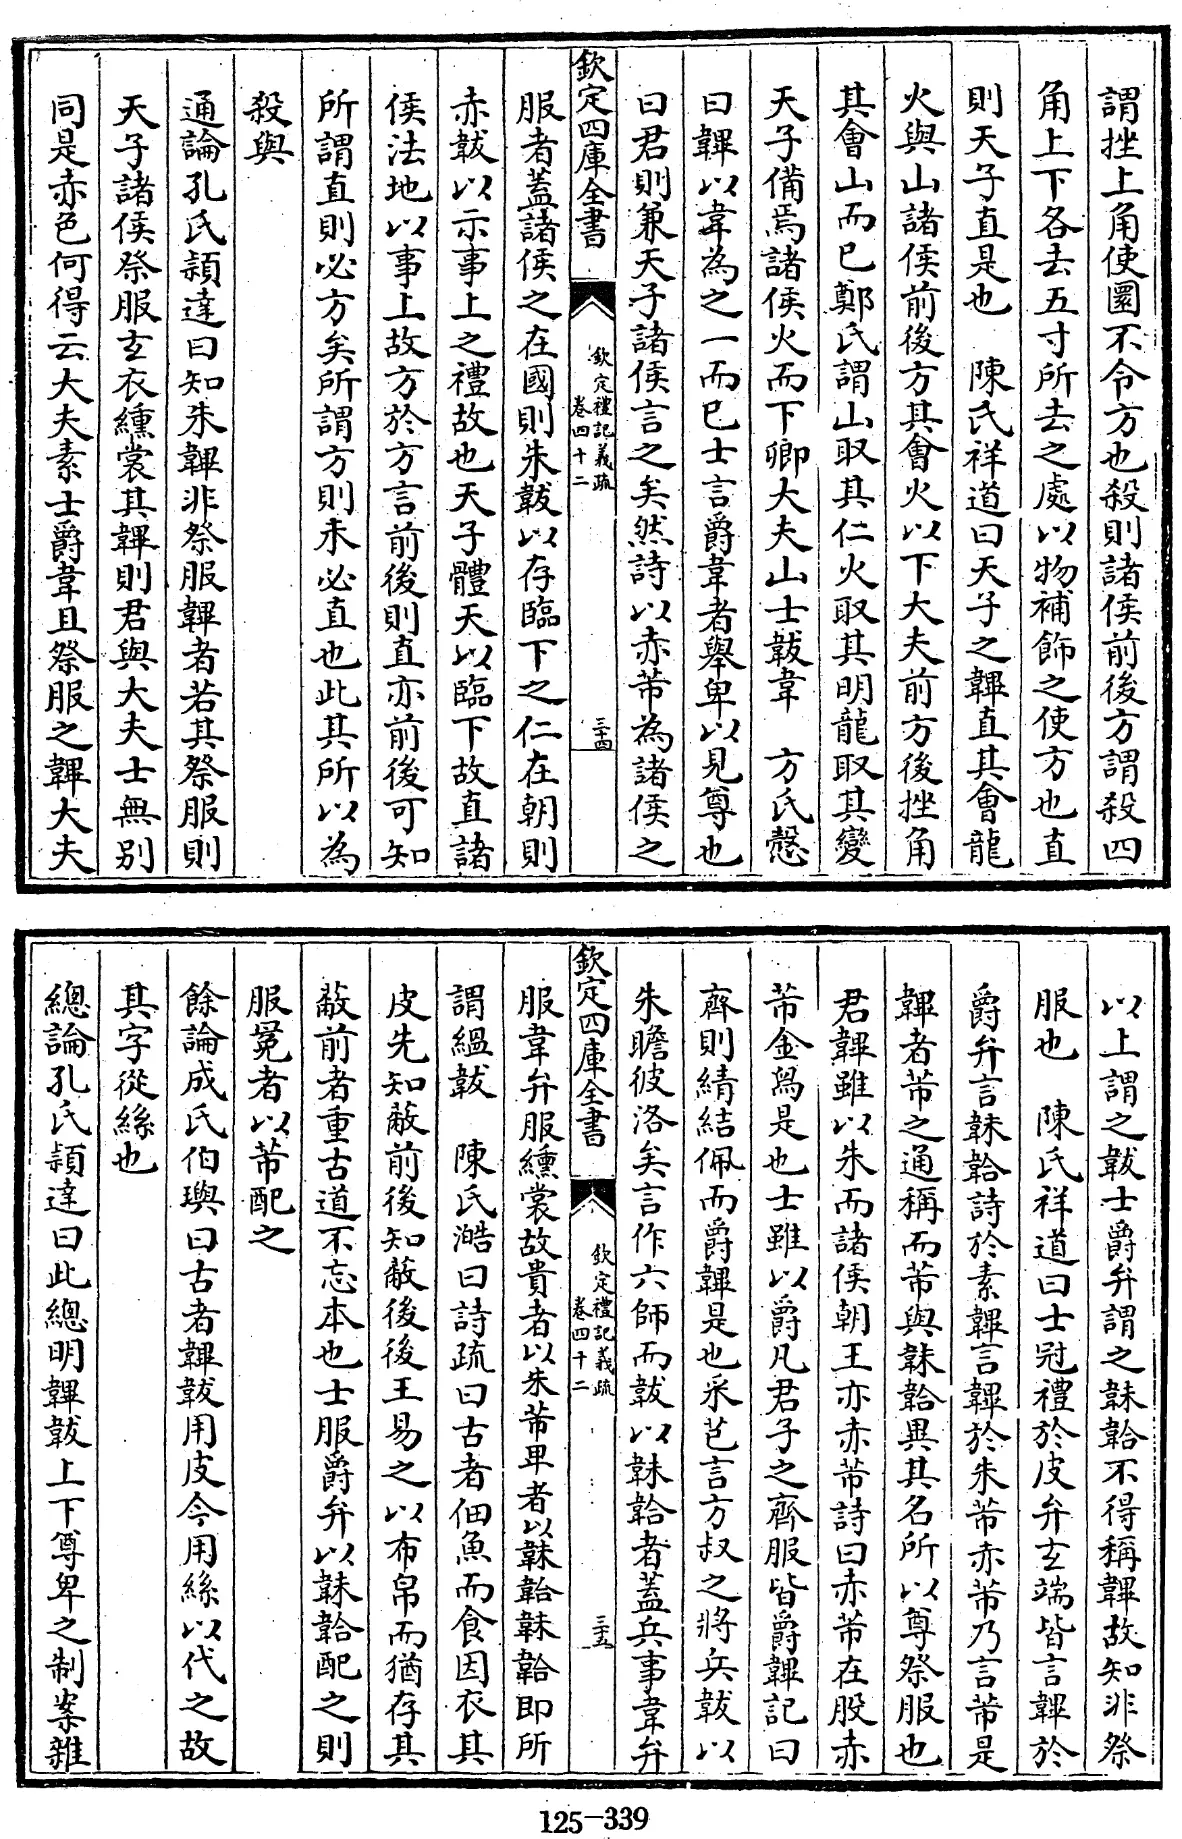 謂挫上角使圜不令方也殺則諸侯前後方謂殺四
角上下各去五寸所去之處以物補飾之使方也直
則天子直是也　陳氏祥道曰天子之韠直其會龍
火與山諸侯前後方其會火以下大夫前方後挫角
其會山而已鄭氏謂山取其仁火取其明龍取其變
天子備焉諸侯火而下卿大夫山士韍韋　方氏慤
曰韠以韋為之一而已士言爵韋者舉卑以見尊也
曰君則兼天子諸侯言之矣然詩以赤芾為諸侯之
欽定四庫全書
欽定禮記義疏
卷四十二
三十四
服者蓋諸侯之在國則朱韍以存臨下之仁在朝則
赤韍以示事上之禮故也天子體天以臨下故直諸
侯法地以事上故方於方言前後則直亦前後可知
所謂直則必方矣所謂方則未必直也此其所以為
殺與
通論孔氏穎達曰知朱韠非祭服韠者若其祭服則
天子諸侯祭服玄衣纁裳其韠則君與大夫士無別
同是赤色何得云大夫素士爵韋且祭服之韠大夫
以上謂之韍士爵弁謂之韎韐不得稱韠故知非祭
服也　陳氏祥道曰士冠禮於皮弁玄端皆言韠於
爵弁言韎韐詩於素韠言韠於朱芾赤芾乃言芾是
韠者芾之通稱而芾與韎韐異其名所以尊祭服也
君韠雖以朱而諸侯朝王亦赤芾詩曰赤芾在股赤
芾金舄是也士雖以爵凡君子之齊服皆爵韠記曰
齊則綪結佩而爵韠是也采芑言方叔之將兵韍以
朱瞻彼洛矣言作六師而韍以韎韐者蓋兵事韋弁
欽定四庫全書
欽定禮記義疏
卷四十二
三十五
服韋弁服纁裳故貴者以朱芾卑者以韎韐韎韐即所
謂縕韍　陳氏澔曰詩疏曰古者佃魚而食因衣其
皮先知蔽前後知蔽後後王易之以布帛而猶存其
蔽前者重古道不忘本也士服爵弁以韎韐配之則
服冕者以芾配之
餘論成氏伯璵曰古者韠韍用皮今用絲以代之故
其字從絲也
總論孔氏穎達曰此總明韠韍上下尊卑之制案雜
125-339